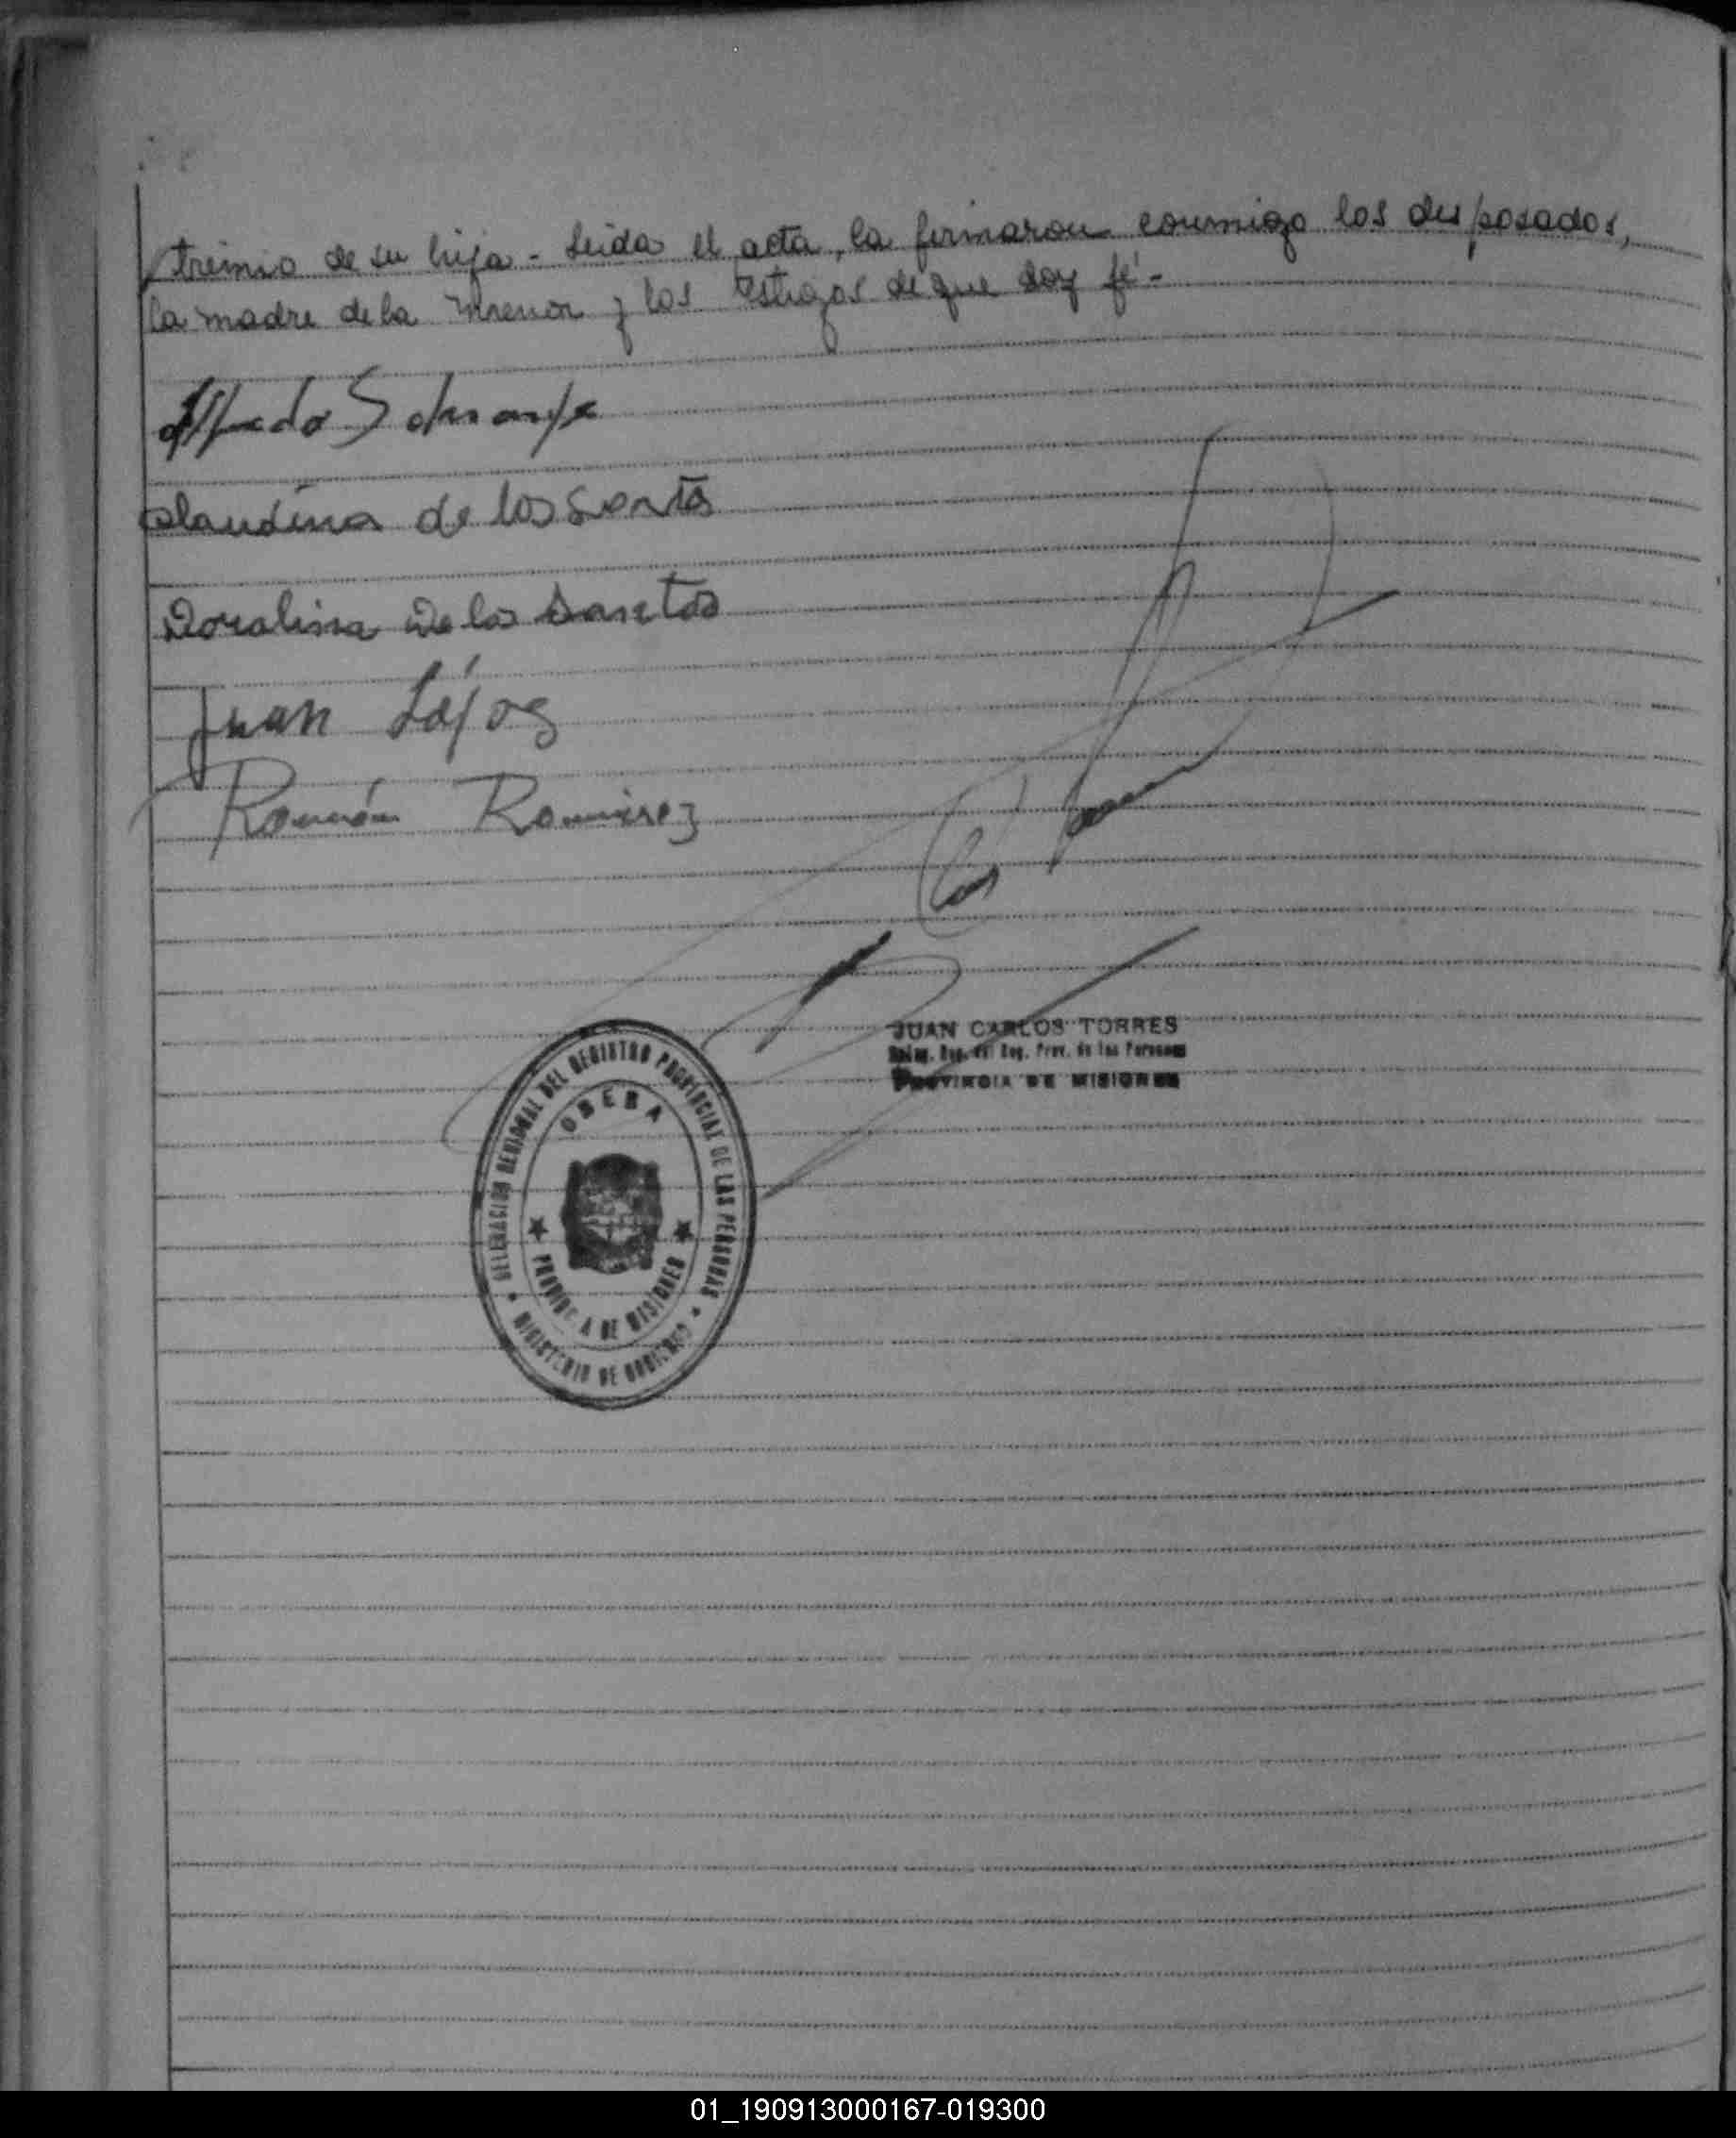 trimonio de su hija - Leida el acta, la firmaron conmigo los desposados,
la madre de la menor y los testigos de que doy fé -
Alfredo
Claudina de los Santos
Doralina De los Santos
Juan López
Román Ramirez
JUAN CARLOS TORRES
Deleg. Reg. del Reg. Prov. de las Personas
PROVINCIA DE MISIONES
DELEGACION REGIONAL DEL REGISTRO PROVINCIAL DE LAS PERSONAS
OBERA
PROVINCIA DE MISIONES
MINISTERIO DE GOBIERNO
01_190913000167-019300